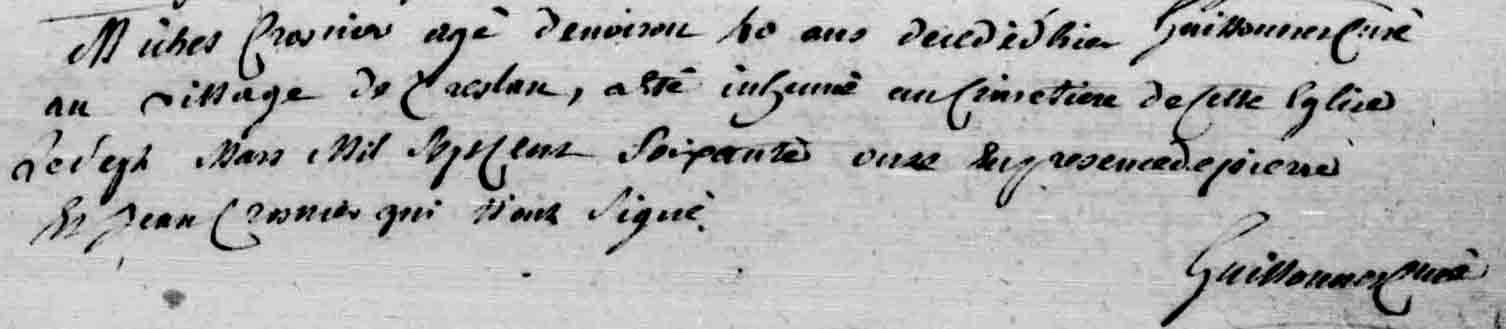 Michel Crosnier agé denviron 60 ans decedé d'hier Guillonnes Curé
au village de Creslan, a été inhumé au Cimetiere de cette Eglise
Le sept Mars Mil sept cent soixante onze En presence de pierre
Et Jean Crosnier qui n'ont signé.
Guillonnes Curé